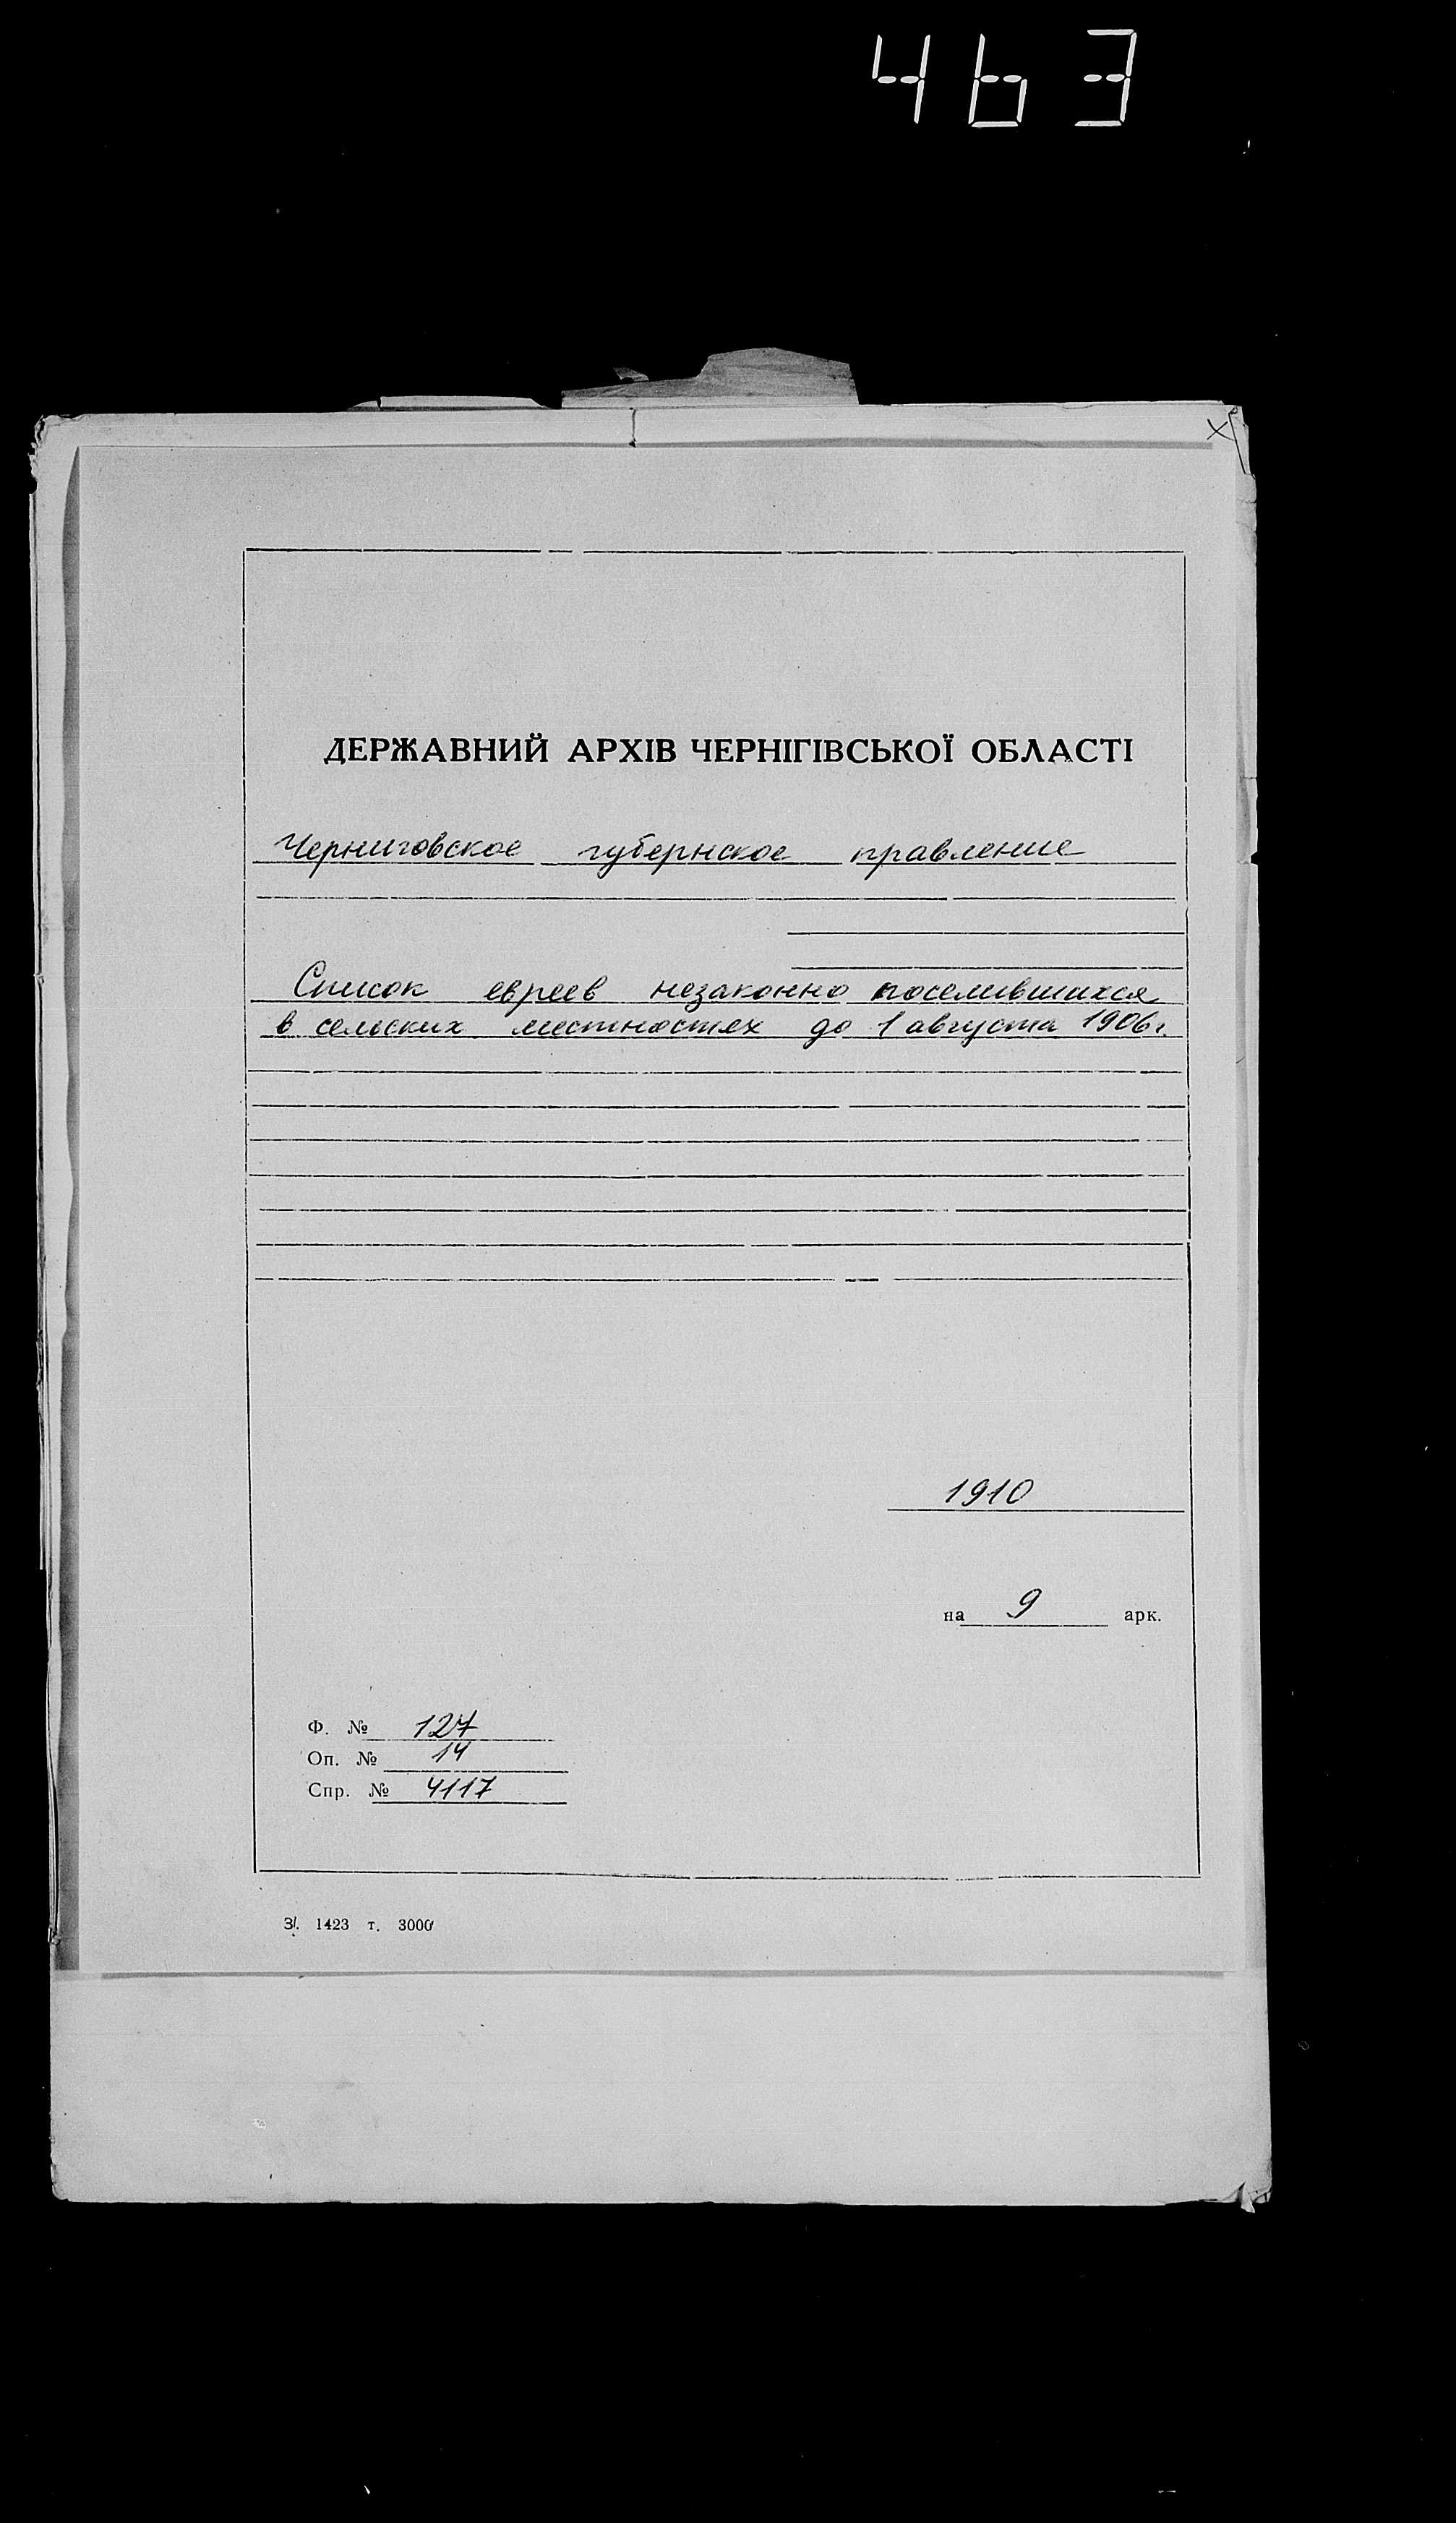 463
ДЕРЖАВНИЙ АРХІВ ЧЕРНІГІВСЬКОЇ ОБЛАСТІ
Черниговское губернское правление
Список евреев незаконно поселившихся
в сельских местностях до 1 августа 1906г.
1910
на 9 арк.
Ф. № 127
Оп. № 14
Спр. № 4117
З. 1423 т. 3000